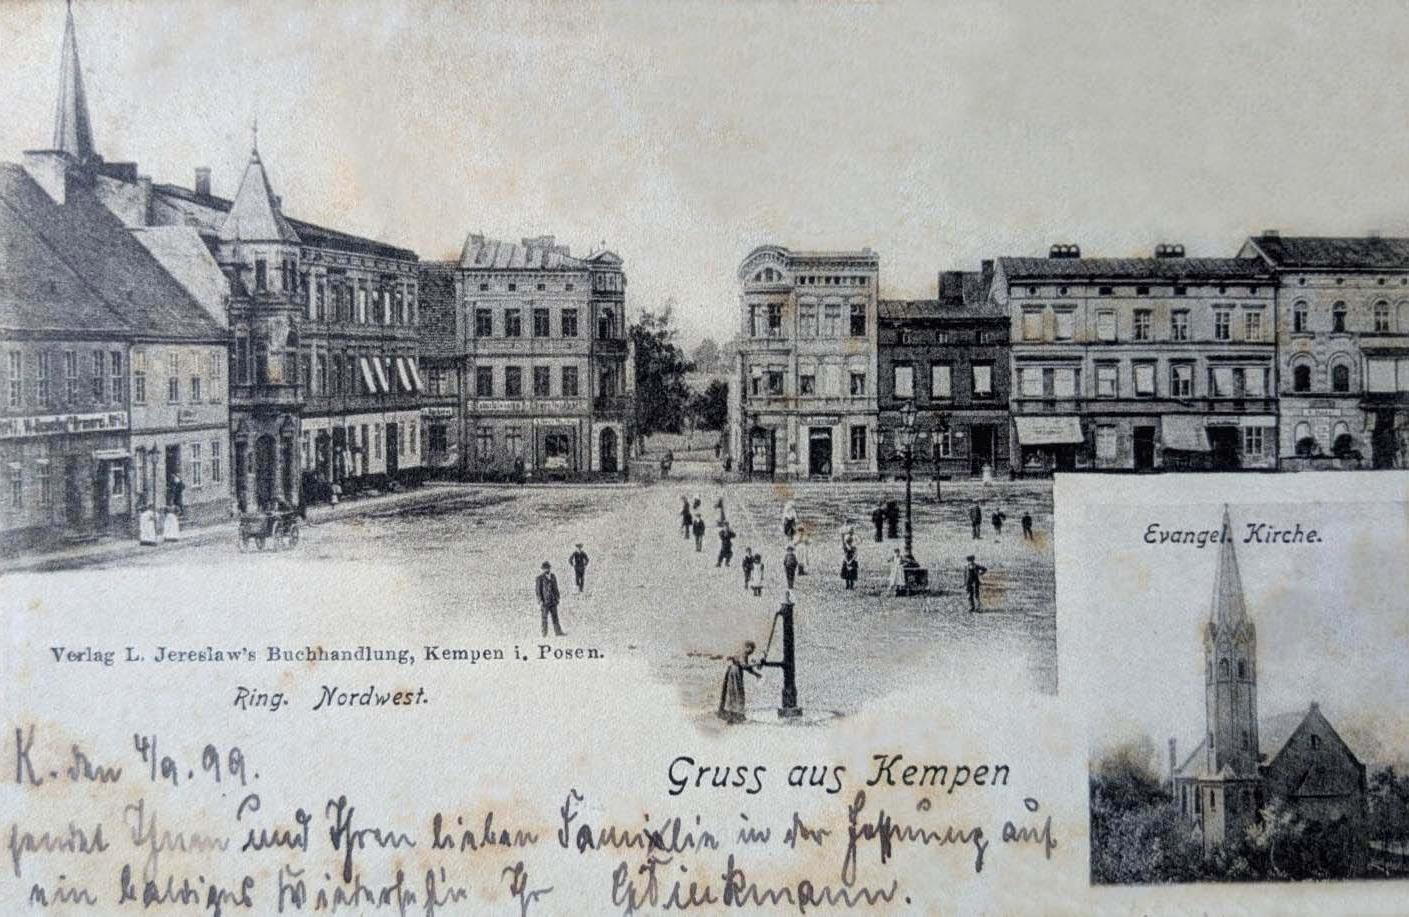 Evangel. Kirche.
Verlag L. Jereslaw's Buchhandlung, Kempen i. Posen.
Ring. Nordwest.
Gruss aus Kempen
K. den 4/9. 99.
sendet Ihnen und Ihren lieben Familie in der Hoffnung auf
ein baldiges Wiedersehn Ihr